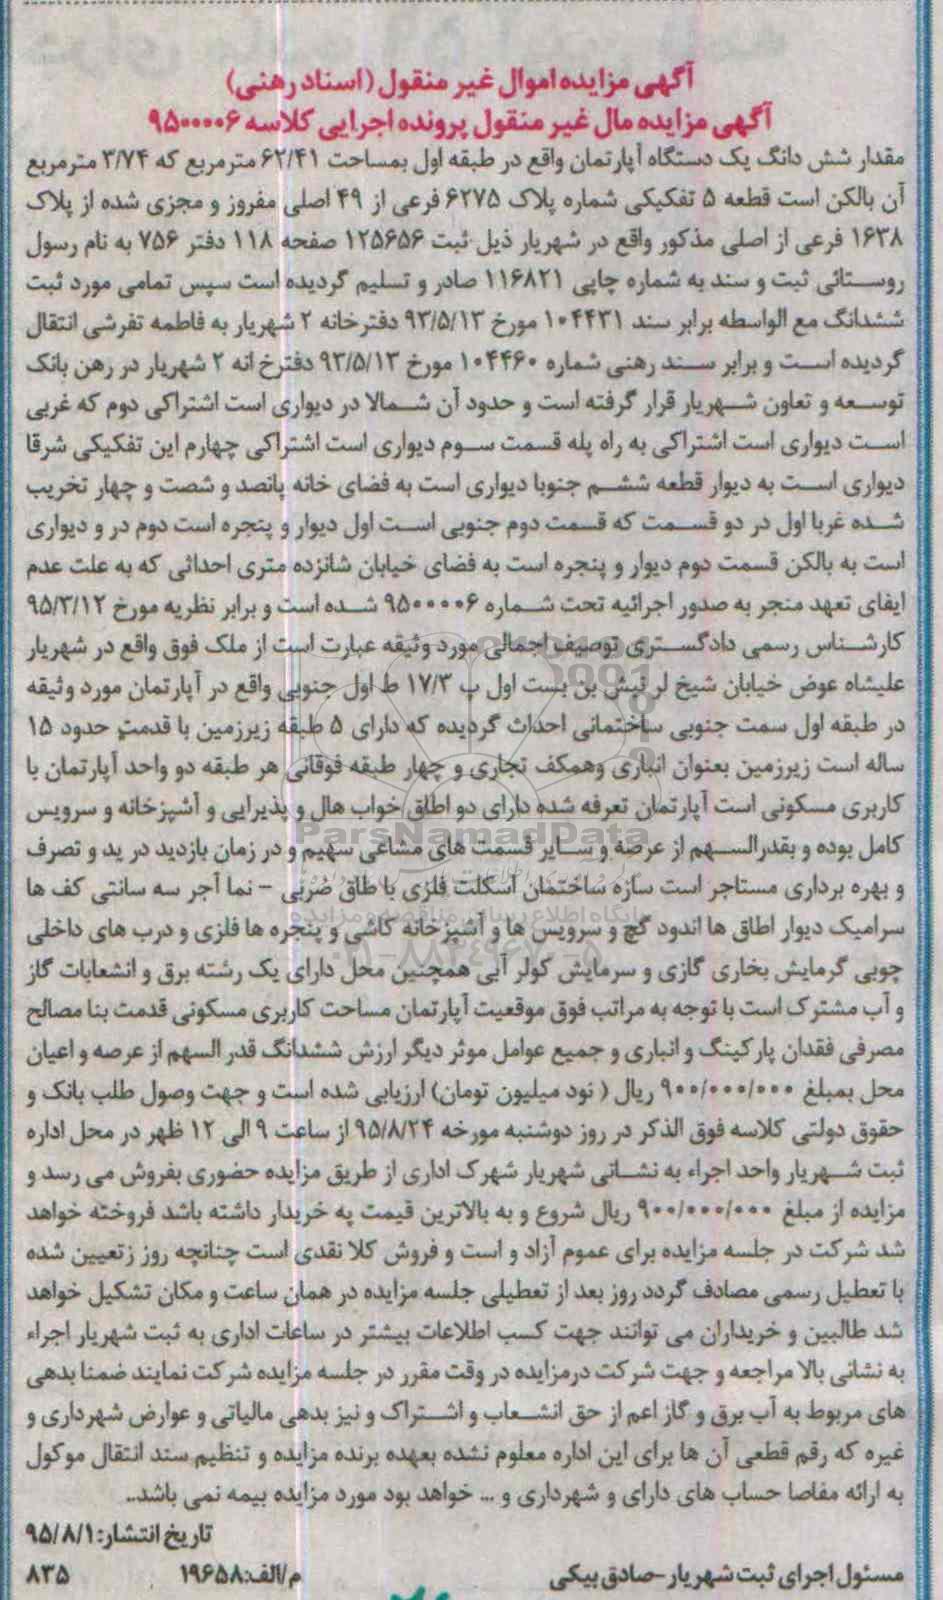 آگهی مزایده اموال غیر منقول (اسناد رهنی)
آگهی مزایده مال غیر منقول پرونده اجرایی کلاسه ۹۵۰۰۰۰۶
مقدار شش دانگ یک دستگاه آپارتمان واقع در طبقه اول بمساحت ۶۲/۴۱ مترمربع که ۳/۷۴ مترمربع
آن بالکن است قطعه ۵ تفکیکی شماره پلاک ۶۲۷۵ فرعی از ۴۹ اصلی مفروز و مجزی شده از پلاک
۱۶۳۸ فرعی از اصلی مذکور واقع در شهریار ذیل ثبت ۱۲۵۶۵۶ صفحه ۱۱۸ دفتر ۷۵۶ به نام رسول
روستائی ثبت و سند به شماره چاپی ۱۱۶۸۲۱ صادر و تسلیم گردیده است سپس تمامی مورد ثبت
ششدانگ مع الواسطه برابر سند ۱۰۴۴۳۱ مورخ ۹۳/۵/۱۳ دفترخانه ۲ شهریار به فاطمه تفرشی انتقال
گردیده است و برابر سند رهنی شماره ۱۰۴۴۶۰ مورخ ۹۳/۵/۱۳ دفترخ انه ۲ شهریار در رهن بانک
توسعه و تعاون شهریار قرار گرفته است و حدود آن شمالا در دیواری است اشتراکی دوم که غربی
است دیواری است اشتراکی به راه پله قسمت سوم دیواری است اشتراکی چهارم این تفکیکی شرقا
دیواری است به دیوار قطعه ششم جنوبا دیواری است به فضای خانه پانصد و شصت و چهار تخریب
شده غربا اول در دو قسمت که قسمت دوم جنوبی است اول دیوار و پنجره است دوم در و دیواری
است به بالکن قسمت دوم دیوار و پنجره است به فضای خیابان شانزده متری احداثی که به علت عدم
ایفای تعهد منجر به صدور اجرائیه تحت شماره ۹۵۰۰۰۰۶ شده است و برابر نظریه مورخ ۹۵/۳/۱۲
کارشناس رسمی دادگستری توصیف اجمالی مورد وثیقه عبارت است از ملک فوق واقع در شهریار
علیشاه عوض خیابان شیخ لر نبش بن بست اول پ ۱۷/۳ ط اول جنوبی واقع در آپارتمان مورد وثیقه
در طبقه اول سمت جنوبی ساختمانی احداث گردیده که دارای ۵ طبقه زیرزمین با قدمت حدود ۱۵
ساله است زیرزمین بعنوان انباری وهمکف تجاری و چهار طبقه فوقانی هر طبقه دو واحد آپارتمان با
کاربری مسکونی است آپارتمان تعرفه شده دارای دو اطاق خواب هال و پذیرایی و آشپزخانه و سرویس
ParsNamadData
کامل بوده و بقدرالسهم از عرصه و سایر قسمت های مشاعی سهیم و در زمان بازدید در ید و تصرف
و بهره برداری مستاجر است سازه ساختمان اسکلت فلزی با طاق ضربی - نما آجر سه سانتی کف ها
پایگاه اطلاع رسانی مناقصه و مزایده
سرامیک دیوار اطاق ها اندود گچ و سرویس ها و آشپزخانه کاشی و پنجره ها فلزی و درب های داخلی
چوبی گرمایش بخاری گازی و سرمایش کولر آبی همچنین محل دارای یک رشته برق و انشعابات گاز
و آب مشترک است با توجه به مراتب فوق موقعیت آپارتمان مساحت کاربری مسکونی قدمت بنا مصالح
مصرفی فقدان پارکینگ و انباری و جمیع عوامل موثر دیگر ارزش ششدانگ قدر السهم از عرصه و اعیان
محل بمبلغ ۹۰۰/۰۰۰/۰۰۰ ریال ( نود میلیون تومان) ارزیابی شده است و جهت وصول طلب بانک و
حقوق دولتی کلاسه فوق الذکر در روز دوشنبه مورخه ۹۵/۸/۲۴ از ساعت ۹ الی ۱۲ ظهر در محل اداره
ثبت شهریار واحد اجراء به نشانی شهریار شهرک اداری از طریق مزایده حضوری بفروش می رسد و
مزایده از مبلغ ۹۰۰/۰۰۰/۰۰۰ ریال شروع و به بالاترین قیمت په خریدار داشته باشد فروخته خواهد
شد شرکت در جلسه مزایده برای عموم آزاد و است و فروش کلا نقدی است چنانچه روز زتعیین شده
با تعطیل رسمی مصادف گردد روز بعد از تعطیلی جلسه مزایده در همان ساعت و مکان تشکیل خواهد
شد طالبین و خریداران می توانند جهت کسب اطلاعات بیشتر در ساعات اداری به ثبت شهریار اجراء
به نشانی بالا مراجعه و جهت شرکت درمزایده در وقت مقرر در جلسه مزایده شرکت نمایند ضمنا بدهی
های مربوط به آب برق و گاز اعم از حق انشعاب و اشتراک و نیز بدهی مالیاتی و عوارض شهرداری و
غیره که رقم قطعی آن ها برای این اداره معلوم نشده بعهده برنده مزایده و تنظیم سند انتقال موکول
به ارائه مفاصا حساب های دارای و شهرداری و ... خواهد بود مورد مزایده بیمه نمی باشد..
تاریخ انتشار: ۹۵/۸/۱
مسئول اجرای ثبت شهریار-صادق بیکی
م/الف:۱۹۶۵۸
۸۳۵